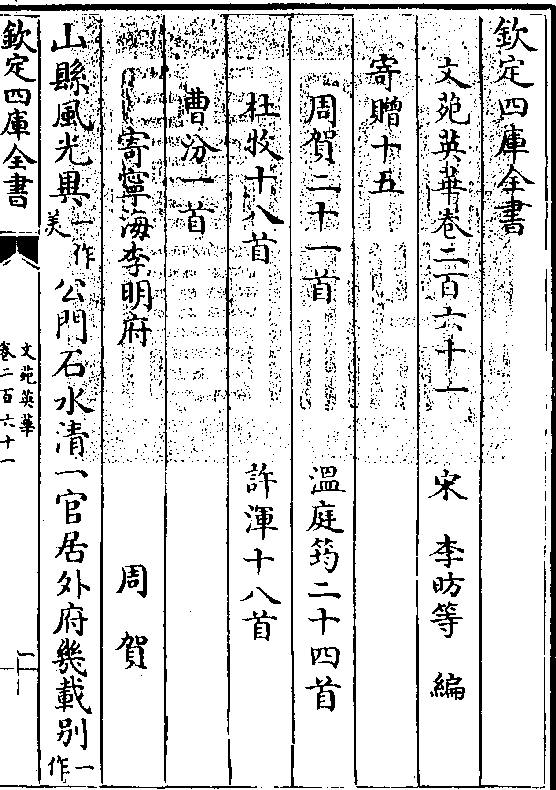 欽定四庫全書
文苑英華卷二百六十一 宋 李昉等 編
寄贈十五
周賀二十一首 溫庭筠二十四首
杜牧十八首 許渾十八首
曹汾一首
寄寧海李明府 周賀
山縣風光異一作美公門石水清一官居外府幾載别一作
欽定四庫全書
文苑英華
卷二百六十一
一